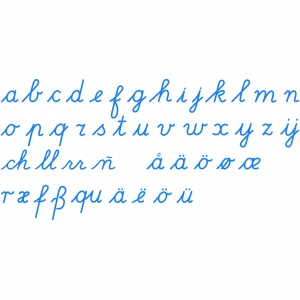 a b c d e f g h i j k l m n
o p q r s t u v w x y z ij
ch ll rr ñ å ä ö ø æ
r æ f β qu ä ë ö ü